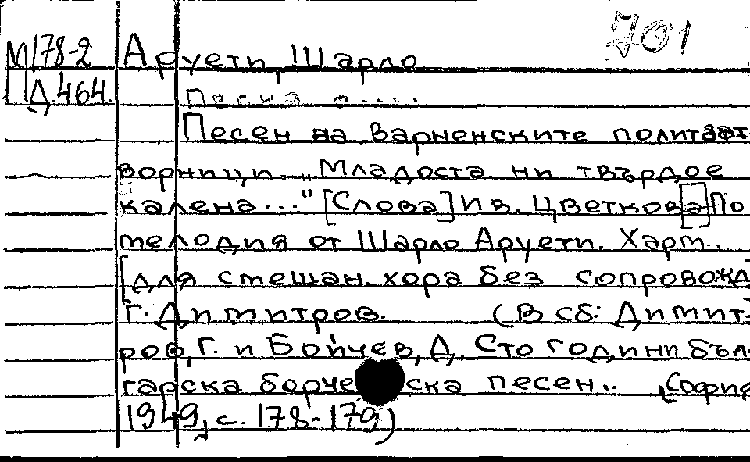 701
М178-2 Аруети, Шарло
Д464. Песня о....
Песен на варненските политзат
ворници. „Младоста ни твърдое
калена..." [Слова] И в. Цветкова По
мелодия от Шарло Аруети. Харм.
[для смешан. хора без сопровожд
Г. Димитров. (В сб: Димит-
ров, Г. и Бойчев, Д. Сто години бъл-
гарска борческа песен.. София
1949, с. 178-179)